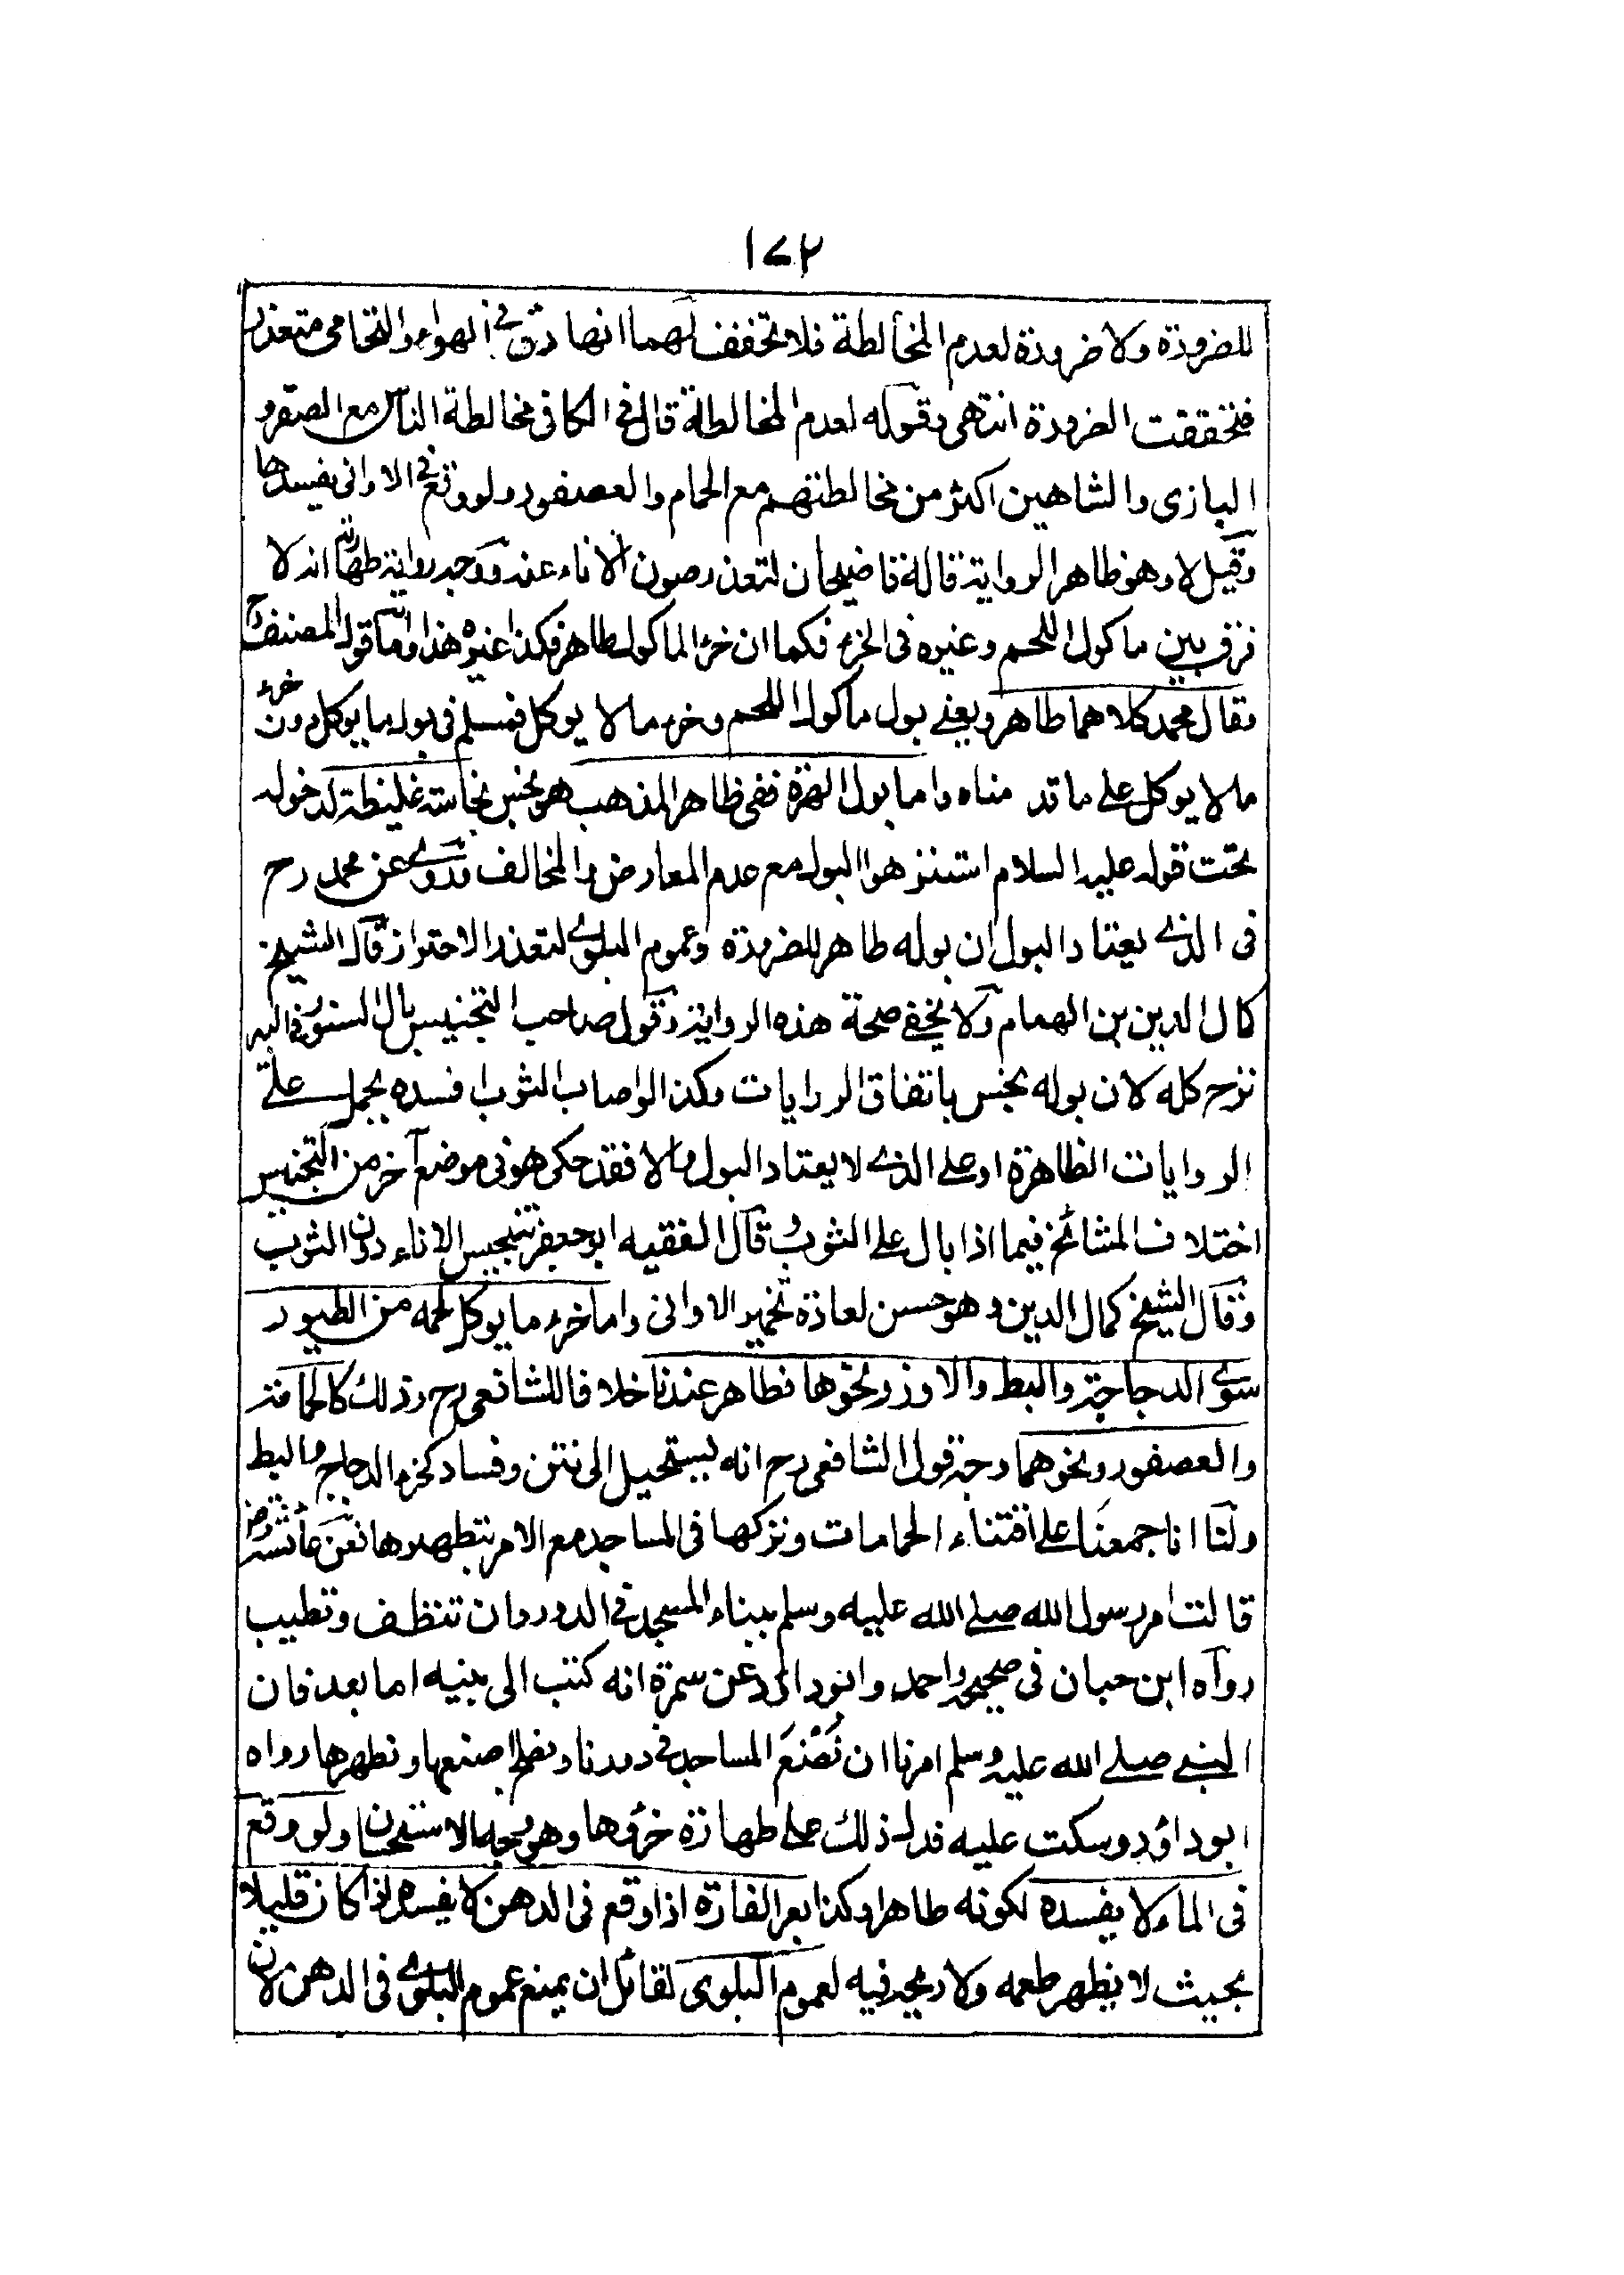 ١٧٢
للضرورة ولا ضرورة لعدم المخالطة فلا تخفف لهما انها تذرق في الهواء والتحامي متعذر
فتحققت الضرورة انتهى وقوله لعدم المخالطة قال في الكافي مخالطة الناس مع الصقر و
البازى والشاهين اكثر من مخالطتهم مع الحمام والعصفور ولو وقع في الاواني يفسدها
وقيل لا وهو ظاهر الرواية قاله قاضيخان لتعذر صون الاناء عنه ووجه رواية طهارته انه لا
فرق بين ماكول اللحم وغيره فى الخرء فكما ان خرء الماكول طاهر فكذا غيره هذا واما قول المصنف رح
وقال محمد كلاهما طاهر ويعني بول ماكول اللحم وخرء ما لا يوكل فمسلم في بول ما يوكل دون خرء
ما لا يوكل على ما قدمناه واما بول الهرة ففى ظاهر المذهب هو نجس نجاسته غليظة لدخوله
تحت قوله عليه السلام استنزهوا البول مع عدم المعارض والمخالف وروى عن محمد رح
فى الذي يعتاد البول ان بوله طاهر للضرورة وعموم البلوى لتعذر الاحتراز قال الشيخ
كمال الدين بن الهمام ولا يخفى صحة هذه الرواية وقول صاحب التجنيس بال السنور في البير
نزح كله لان بوله نجس باتفاق الروايات وكذا لو اصاب الثوب افسده يحمل على
الروايات الظاهرة او على الذي لا يعتاد البول والا فقد حكى هو فى موضع آخر من التجنيس
اختلاف المشائخ فيما اذا بال على الثوب قال الفقيه ابو جعفر تنجيس الاناء دون الثوب
وقال الشيخ كمال الدين وهو حسن لعادة تخمير الاواني واما خرء ما يوكل لحمه من الطيور
سوى الدجاجة والبط والاوز ونحوها فطاهر عندنا خلافا للشافعى رح وذلك كالحمامة
والعصفور ونحوهما وجه قول الشافعى رح انه يستحيل الى نتن وفساد كخرء الدجاج والبط
ولنا انا جمعنا على اقتناء الحمامات وتركها فى المساجد مع الامر بتطهيرها فعن عائشة رض
قالت امر رسول الله صلى الله عليه وسلم ببناء المسجد في الدور وان تنظف وتطيب
رواه ابن حبان فى صحيحه واحمد وابوداود عن سمرة انه كتب الى بنيه اما بعد فان
النبي صلى الله عليه وسلم امرنا ان نَصْنَعَ المساجد في دورنا ونصلح صنعها ونطهرها رواه
ابوداؤد وسكت عليه فدل ذلك على طهارة خرؤها وهو وجه الاستحسان ولو وقع
فى الماء لا يفسده لكونه طاهرا وكذا بعر الفارة اذا وقع فى الدهن لا يفسده اذا كان قليلا
بحيث لا يظهر طعمه ولا ريحه فيه لعموم البلوى لقائل ان يمنع عموم البلوى فى الدهن لان